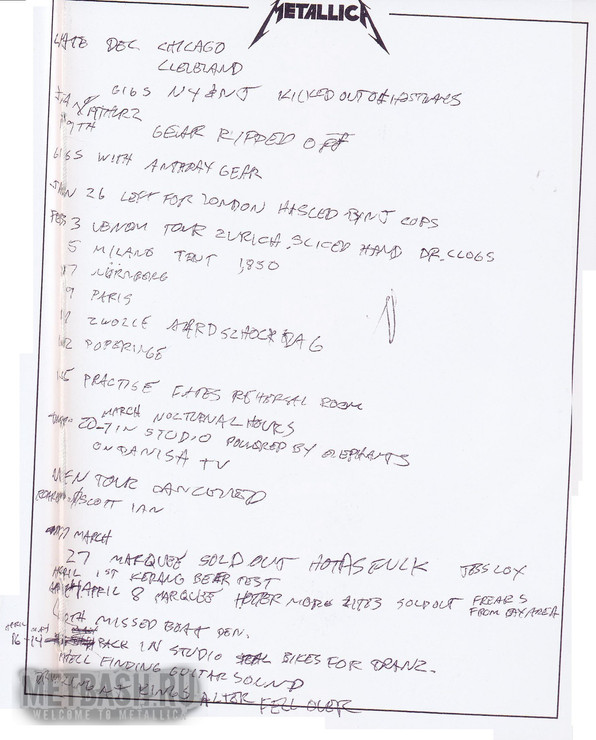 METALLICA
LATE DEC. CHICAGO
CLEVELAND
GIGS NY & NJ KICKED OUT OF
GEAR RIPPED OFF
GIGS WITH ANTHRAX GEAR
JAN 26 LEFT FOR LONDON HASLED BY NJ COPS
FEB 3 VENOM TOUR ZURICH. SLICED HAND DR. CLOGS
5 MILANO TENT 1,850
7 NÜRNBERG
9 PARIS
11 ZWOLLE AARDSCHOCK DAG
12 POPERINGE
PRACTISE FATES REHERSAL ROOM
MARCH NOCTURNAL HOURS
20-7 IN STUDIO POWERED BY ELEPHANTS
ON DANISH TV
TOUR CANCELLED
SCOTT IAN
MARCH
27 MARQUEE SOLD OUT HOT AS FUCK
APRIL 1ST KERANG BEAR TEST
APRIL 8 MARQUEE HOTTER MORE SOLD OUT FREAKS
FROM BAY AREA
MISSED BOAT DEN.
APRIL MAY
16-14 BACK IN STUDIO BIKES FOR TRANZ.
HELL FINDING GUITAR SOUND
KINGS ALTER FELL OVER
METBASH.RU
WELCOME TO METALLICA